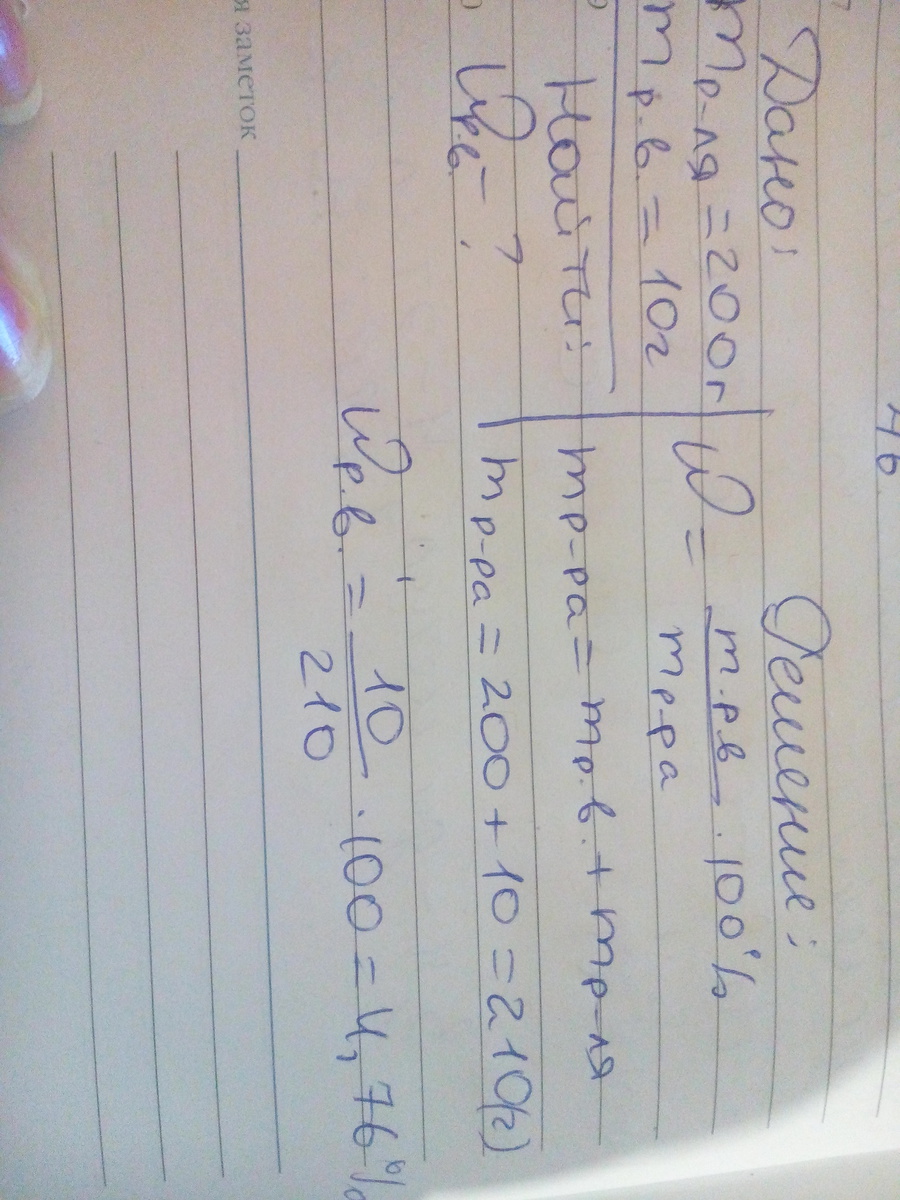 Дано:
mр-ля = 200г
mр.в. = 10г
Найти:
Wр.в. - ?
Решение:
W = m.р.в / mр-ра · 100%
mр-ра = mр.в. + mр-ля
mр-ра = 200 + 10 = 210(г)
Wр.в. = 10 / 210 · 100 = 4,76%
я заметок